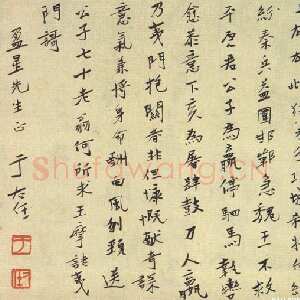 紛秦兵益圍邯鄲急魏王不救
平原君公子為嬴停駟馬執轡
愈恭意下亥為屠肆鼓刀人嬴
乃夷門抱關者非但慷慨獻奇謀
意氣兼將身命酬向風刎頸送
公子七十老翁何所求王摩詰夷
門謌
星先生正 于右任
Shufawang.CN